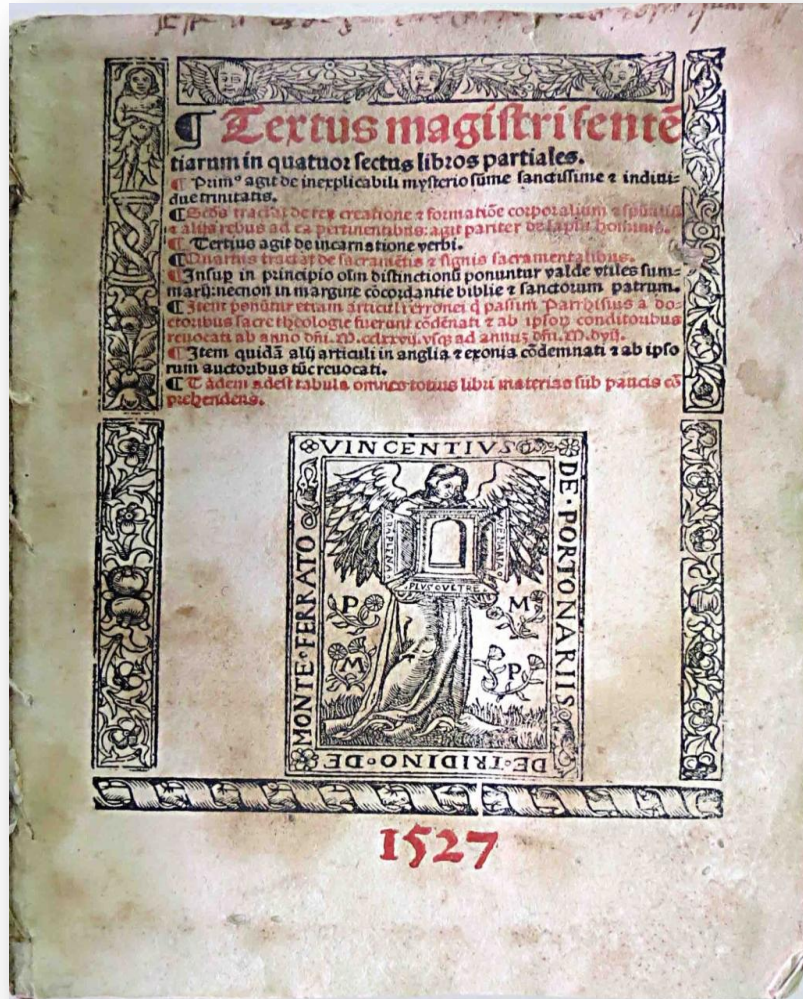 ¶ Textus magistri sentē
tiarum in quatuor sectus libros partiales.
¶ Primº agit de inexplicabili mysterio sūme sanctissime ⁊ indiui⸗
due trinitatis.
¶ Scd̄s tractat de rex creatione ⁊ formatiōe corporalium ⁊ sp̄ualiū
⁊ alijs rebus ad ea pertinentibus: agit pariter de lapsu hominis.
¶ Tertius agit de incarnatione verbi.
¶ Quartus tractat de sacramētis ⁊ signis sacramentalibus.
¶ Insup in principio oīm distinctionū ponuntur valde vtiles sum⸗
marij: necnon in margine cōcordantie biblie ⁊ sanctorum patrum.
¶ Item ponūtur etiam articuli erronei q̄ passim Parrhisius a do⸗
ctoribus sacre theologie fuerunt cōdēnati ⁊ ab ipsoꝝ conditoribus
reuocati ab anno dn̄i. M.cclxxvij. vsq̄ ad annuȝ dn̄i. M.dvij.
¶ Item quidā alij articuli in anglia ⁊ exonia cōdemnati ⁊ ab ipso
rum auctoribus tūc reuocati.
¶ Tādem adest tabula omnes totius libri materias sub paucis cō
prehendens.
VINCENTIVS
DE·PORTONARIIS
DE·TRIDINO·DE
MONTE·FERRATO
PLVS·OVLTRE
P M
M P
1527